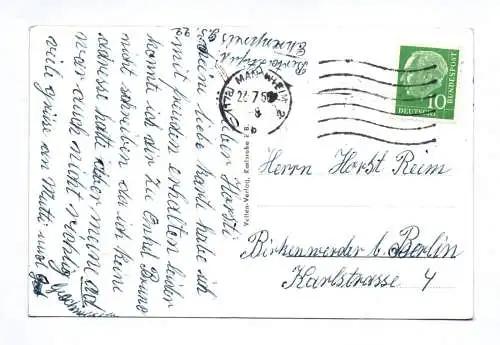 Lieber Horst!
Deine liebe Karte habe ich
mit freuden erhalten leider
konnte ich dir zu Enkel Bruno
nicht schreiben da ich keine
adresse hatte aber meine ad
war auch nicht richtig
viele grüsse an Mutti und
MANNHEIM 2
10
DEUTSCHE BUNDESPOST
Velten-Verlag, Karlsruhe i. B.
Herrn Horst Reim
Birkenwerder b. Berlin
Karlstrasse 4